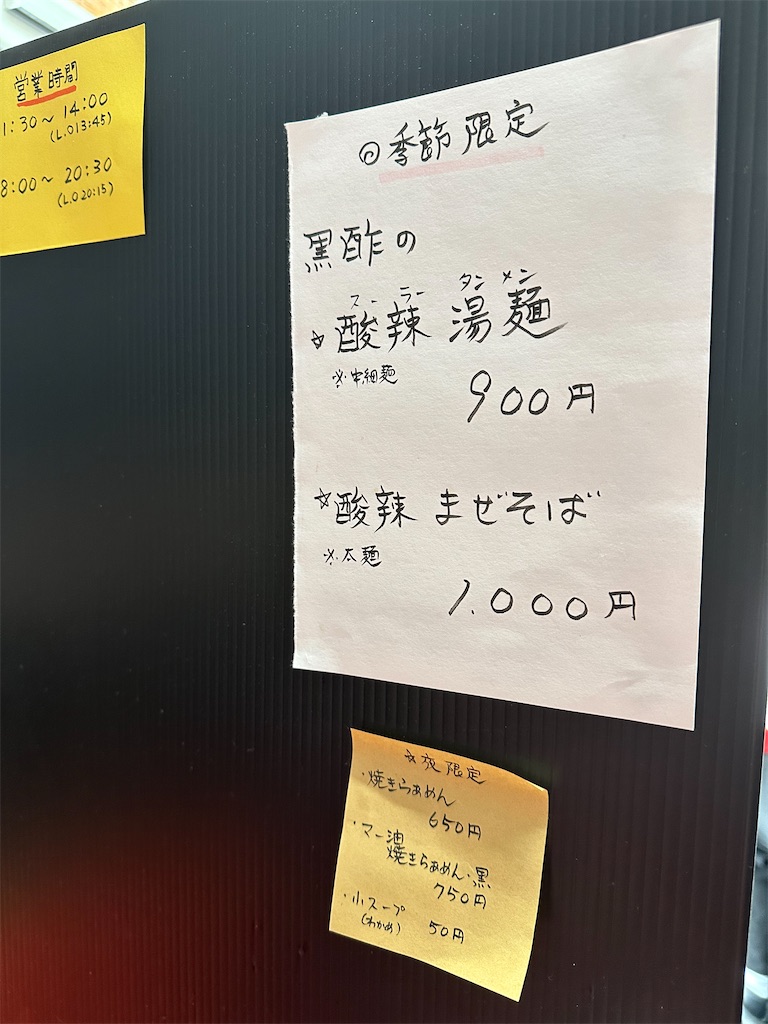 営業時間
1:30～14:00
(L.O13:45)
8:00～20:30
(L.O20:15)
◎季節限定
黒酢の
スーラー タンメン
☆酸辣 湯麺
※中細麺
900円
☆酸辣 まぜそば
※太麺
1.000円
☆夜限定
・焼きらぁめん
650円
・マー油
焼きらぁめん・黒
750円
・小スープ
(わかめ) 50円